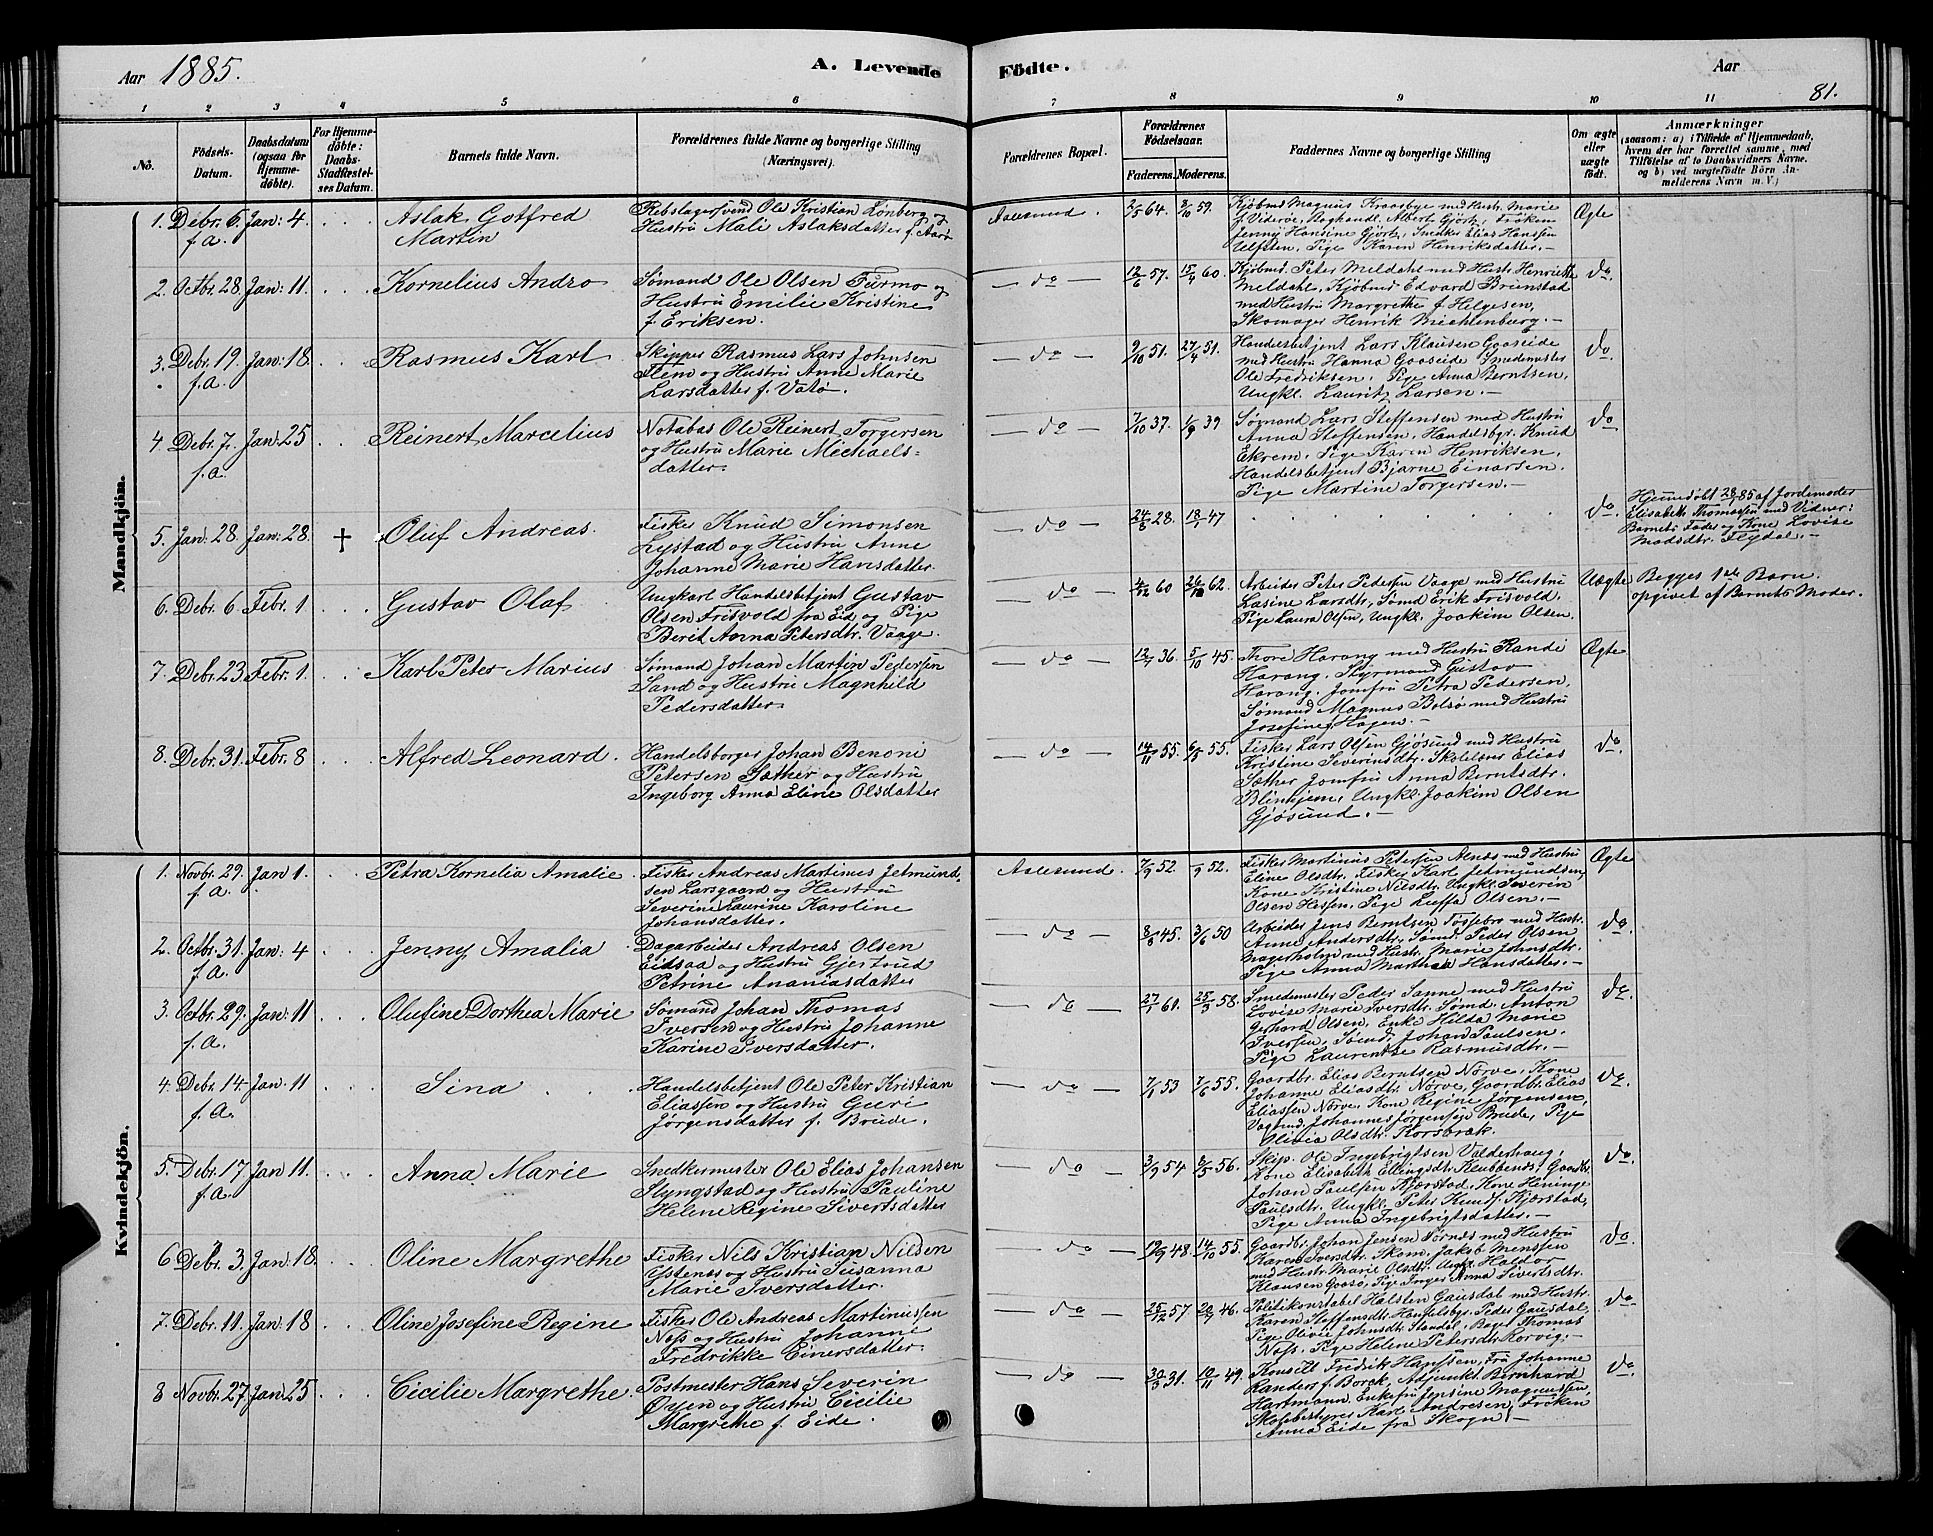 Aar 1885. A. Levende Födte. Aar 81.
1 2 3 4 5 6 7 8 9 10 11
No.
Födsels-Datum.
Daabsdatum (ogsaa for Hjemme-döbte).
For Hjemme-döbte: Daabs-Stadfæstel-ses Datum.
Barnets fulde Navn.
Forældrenes fulde Navne og borgerlige Stilling (Næringsvei).
Forældrenes Bopæl.
Forældrenes Födselsaar.
Faderens. Moderens.
Faddernes Navne og borgerlige Stilling
Om ægte eller uægte födt.
Anmærkninger
(saasom: a) i Tilfælde af Hjemmedaab,
hvem der har forrettet samme, med
Tilföielse af to Daabsvidners Navne.
og b) ved uægtefödte Börn An-
melderens Navn m. V.)
Mandkjön.
1. Debr. 6 f.a. Jan: 4. Aslak Gotfred Martin
Rebslagersvend Ole Kristian Lönberg og
Hustru Mali Aslaksdatter f. Aarø
Aalesund. 2/5 64. 3/10 59.
Kjöbmd Magnus Kraasbye med Hustr. Marie
f. Viderøe, Boghandl. Albert Gjört, Fröken
Jenny Hansine Gjört, Snedker Elias Hanssen
Ulfsten, Pige Karen Henriksdatter.
Ægte
2. Octbr 28. Jan: 11. Kornelius Andro
Sömand Ole Olsen Furmo og
Hustru Emilie Kristine
f. Eriksen.
do 12/6 57. 15/4 60.
Kjöbmd. Peter Meldahl med Hustr. Henriette
Meldahl, Kjöbmd Edvard Brunstad
med Hustru Margrethe f. Helgesen,
Skomager Henrik Mechlenburg.
do.
3. Debr. 19. f.a. Jan: 18. Rasmus Karl
Skipper Rasmus Lars Johnsen
Flem og Hustru Anne Marie
Larsdatter f. Vatø.
do 9/10 51. 27/4 51.
Handelsbetjent Lars Klausen Gaaseide
med Hustru Hanna Gaaseide Smedemester
Ole Fredriksen. Pige Anna Berntsen,
Ungkl. Lauritz Larsen.
do
4. Debr. 7. f.a. Jan: 25 Reinert Marcelius
Notabas Ole Reinert Torgersen
og Hustru Marie Michaels-
datter.
do 7/10 37. 1/9 39
Sömand Lars Steffensen med Hustru
Anna Steffensen, Handelsbgr. Knud
Ekrem. Pige Karen Henriksen,
Handelsbetjent Bjarne Einarsen.
Pige Martine Torgersen.
do
5. Jan: 28. Jan: 28. † Oluf Andreas.
Fisker Knud Simonsen
Lystad og Hustru Anne
Johanne Marie Hansdatter
do 24/6 28. 18/1 47
do. Hjemmedöbt 28/1 85 af Jordemoder
Elisabeth Thomassen med Vidner:
Barnets Fader og Kone Lovise
Madsdtr. Flydal.
6. Debr. 6 Febr. 1 Gustav Olaf
Ungkarl Handelsbetjent Gustav
Olsen Frisvold fra Eid og Pige
Berit Anna Petersdtr. Vaage.
do 4/12 60 26/12 62.
Arbeider Peter Pedersen Vaage med Hustru
Lasine Larsdtr, Sömd Erik Frisvold.
Pige Laura Olsen, Ungkl. Joakim Olsen.
Uægte Begges 1ste Barn.
opgivet af Barnets Moder.
7. Debr. 23. Febr. 1. Karl Peter Marius
Sömand Johan Martin Pedersen
Sand og Hustru Magnhild
Pedersdatter.
do 12/7 36. 5/10 45.
Thore Harang med Hustru Randi
Harang. Styrmand Gustav
Harang. Jomfru Petra Pedersen.
Sömand Magnus Bolsø med Hustru
Josefine f. Hagen.
Ægte
8. Debr. 31. Febr. 8 Alfred Leonard.
Handelsborger Johan Benoni
Petersen Sæther og Hustru
Ingeborg Anna Eline Olsdatter
do 14/11 55. 6/5 55.
Fisker Lars Olsen Gjøsund med Hustru
Kristine Severinsdtr. Skolelærer Elias
Sæther Jomfru Anna Berntsdtr.
Blinhjem, Ungkl. Joakim Olsen
Gjøsund.
do.
Kvindekjön.
1. Novbr. 29. f.a. Jan 1. Petra Kornelia Amalie.
Fisker Andreas Martinus Jetmund-
sen Larsgaard og Hustru
Severine Laurine Karoline
Johansdatter.
Aalesund. 7/9 52. /9 52.
Fisker Martinus Petersen Alnæs med Hustru
Eline Olsdtr. Fisker Karl Jetmundsen,
Kone Kristine Nilsdtr. Ungkl. Severin
Olsen Hessen. Pige Luffa Olsen.
Ægte
2. Octbr. 31. f.a. Jan: 4 Jenny Amalia
Dagarbeider Andreas Olsen
Eidsaa og Hustru Gjertrud
Petrine Ananiasdatter
do 8/8 45. 3/6 50
Arbeider Jens Berntsen Tösebro med Hustr.
Anne Andersdtr. Sömd Peder Olsen
Magerholm med Hustr. Marie Johnsdtr.
Pige Anna Marthea Hansdatter.
do.
3. Octbr. 29. f.a. Jan: 11 Olufine Dorthea Marie
Sömand Johan Thomas
Iversen og Hustru Johanne
Karine Iversdatter.
do 27/1 61. 25/3 58.
Smedemester Peder Sanne med Hustru
Lovise Marie Iversdtr. Sömd. Anton
Gerhard Olsen, Enke Hilda Marie
Iversen, Sömd. Johan Paulsen.
Pige Laurentze Rasmusdtr.
do.
4. Debr. 14 f.a. Jan: 11 Sina
Handelsbetjent Ole Peter Kristian
Eliassen og Hustru Guri
Jørgensdatter f. Brude.
do 7/1 53 7/6 55.
Gaardbr. Elias Berntsen Nörve, Kone
Johanne Eliasdtr. Nörve, Gaardbr. Elias
Eliassen Nörve, Kone Regine Jørgensen,
Vagtmd. Johannes Jørgensen Brude, Pige
Olivia Olsdtr. Korsbrak.
do.
5. Debr. 17 f.a. Jan 11. Anna Marie
Snedkermester Ole Elias Johansen
Slyngstad og Hustru Pauline
Helene Regine Sivertsdatter
do 3/9 54 3/5 56.
Skip. Ole Ingebrigtsen Valderhaug,
Kone Elisabeth Ellingsdtr. Klubbenes, Gaardbr.
Johan Paulsen Kjærstad, Kone Heninge
Paulsdtr. Ungkl. Peter Knudsf. Kjærstad,
Pige Anna Ingebrigtsdatter.
do.
6 Debr. 3. Jan: 18. Oline Margrethe
Fisker Nils Kristian Nilsen
Ystenes og Hustru Susanna
Marie Iversdatter.
do 19/9 48. 14/10 55.
Gaardbr. Johan Jensen Törnæs med Hustru
Karen Iversdtr. Skom. Jakob Menssen
med Hustr. Marie Olsdtr. Ungkl. Haldor
Klausen Gaasø, Pige Inger Anna Sivertsdtr.
do.
7. Debr. 11. Jan: 18 Oline Josefine Regine
Fisker Ole Andreas Martinussen
Næss og Hustru Johanne
Fredrikke Einersdatter.
do 25/12 57 20/7 46.
Politikonstabel Halsten Gausdal med Hustr.
Karen Steffensdtr. Handelsbgr. Peder Gausdal,
Pige Olivie Johnsdtr. Standal. Bager Thomas
Næss. Pige Helene Petersdtr. Korvig.
do
8 Novbr. 27. Jan 25 Cicilie Margrethe.
Postmester Hans Severin
Øyen og Hustru Cicilie
Margrethe f. Eide.
do 30/3 31. 10/11 49.
Konsul Fredrik Hanssen, Fru Johanne
Randers f. Borch, Adjunkt Bernhard
Hartmann Enkefru Jensine Magnussen,
Skolebestyrer Karl Andresen, Fröken
Anna Eide fra Skogn.
do.